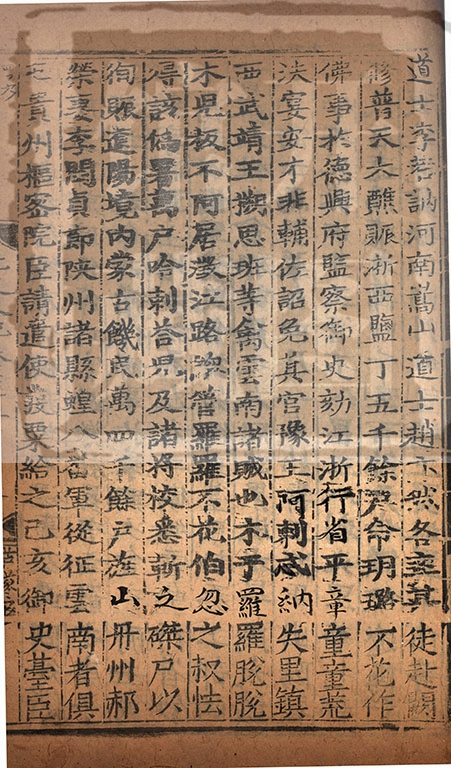 道士李若訥河南嵩山道士趙亦然各率其徒赴闕
修普天大醮賑浙西鹽丁五千餘戶命玥璐不花作
佛事於德興府監察御史劾江浙行省平章童童荒
泆宴安才非輔佐詔免其官豫王阿剌忒納失里鎮
西武靖王搠思班等禽雲南諸賊也木干羅羅脫脫
木兒板不阿居澂江路總管羅羅不花伯忽之叔怯
得該偽署萬戶哈剌答兒及諸將校悉斬之磔尸以
徇賑遼陽境內蒙古饑民萬四千餘戶旌山丹州郝
榮妻李閏貞節陝州諸縣蝗八番軍從征雲南者俱
屯貴州樞密院臣請遣使發粟給之己亥御史臺臣